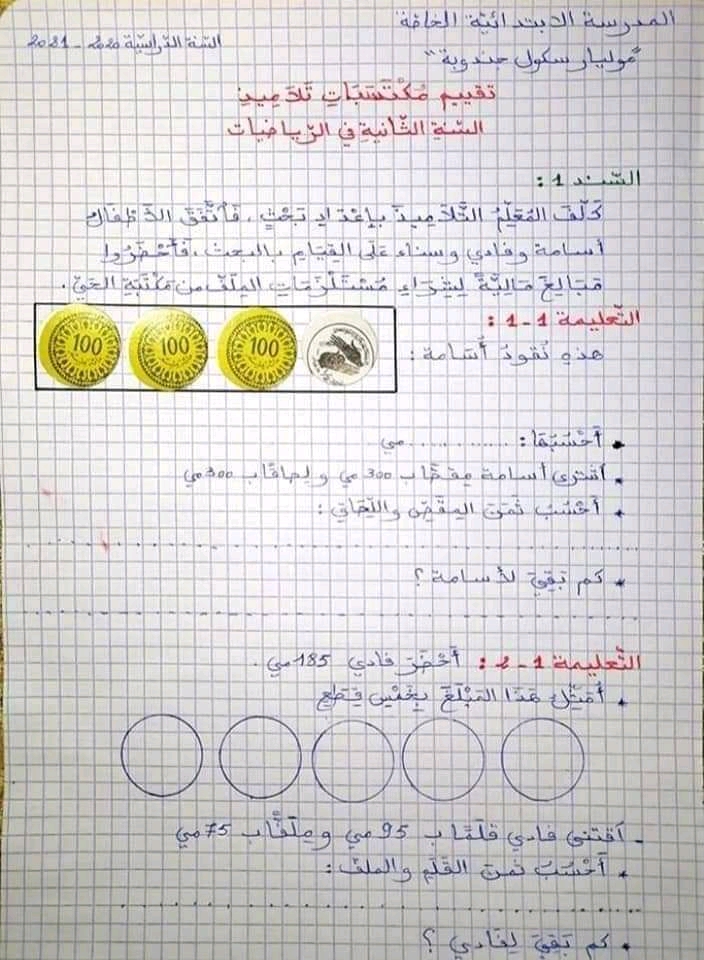 المدرسة الابتدائية الخاصة
السنة الدراسية 2020 - 2021
"موليار سكول جندوبة"
تقييم مُكْتَسَبَاتِ تَلَامِيذِ
السّنةِ الثّانيةِ في الرّياضيات
السّند 1:
كَلَّفَ المُعَلِّمُ التَّلَامِيذَ بِإِعْدَادِ بَحْثٍ، فَاتَّفَقَ الأَطْفَالُ
أسامة وفادي وسناء عَلَى القِيَامِ بالبحثِ، فَأَحْضَرُوا
مَبَالِغَ مَالِيَّةً لِشِرَاءِ مُسْتَلْزَمَاتِ المِلَفِّ من مَكْتَبَةِ الحَيِّ.
التّعليمة 1-1:
100 100 100
هذه نُقُودُ أُسَامة:
• أَحْسُبُهَا: ............. مي
• اشترى أسامة مِقَصًّا بـ 300 مي ولِصَاقًا بـ 300 مي
• أَحْسُبُ ثَمَنَ المِقَصِّ واللِّصَاقِ:
................................
• كم بَقِيَ لأُسامة؟
................................
التّعليمة 1-2: أَحْضَرَ فادي 185 مي.
• أُمَثِّلُ هَذَا المَبْلَغَ بِخَمْسِ قِطَعٍ
- اقتنى فادي قَلَمًا بـ 95 مي ومِلَفًّا بـ 75 مي
• أَحْسُبُ ثَمَنَ القَلَمِ والملفّ:
................................
• كم بَقِيَ لِفَادي؟